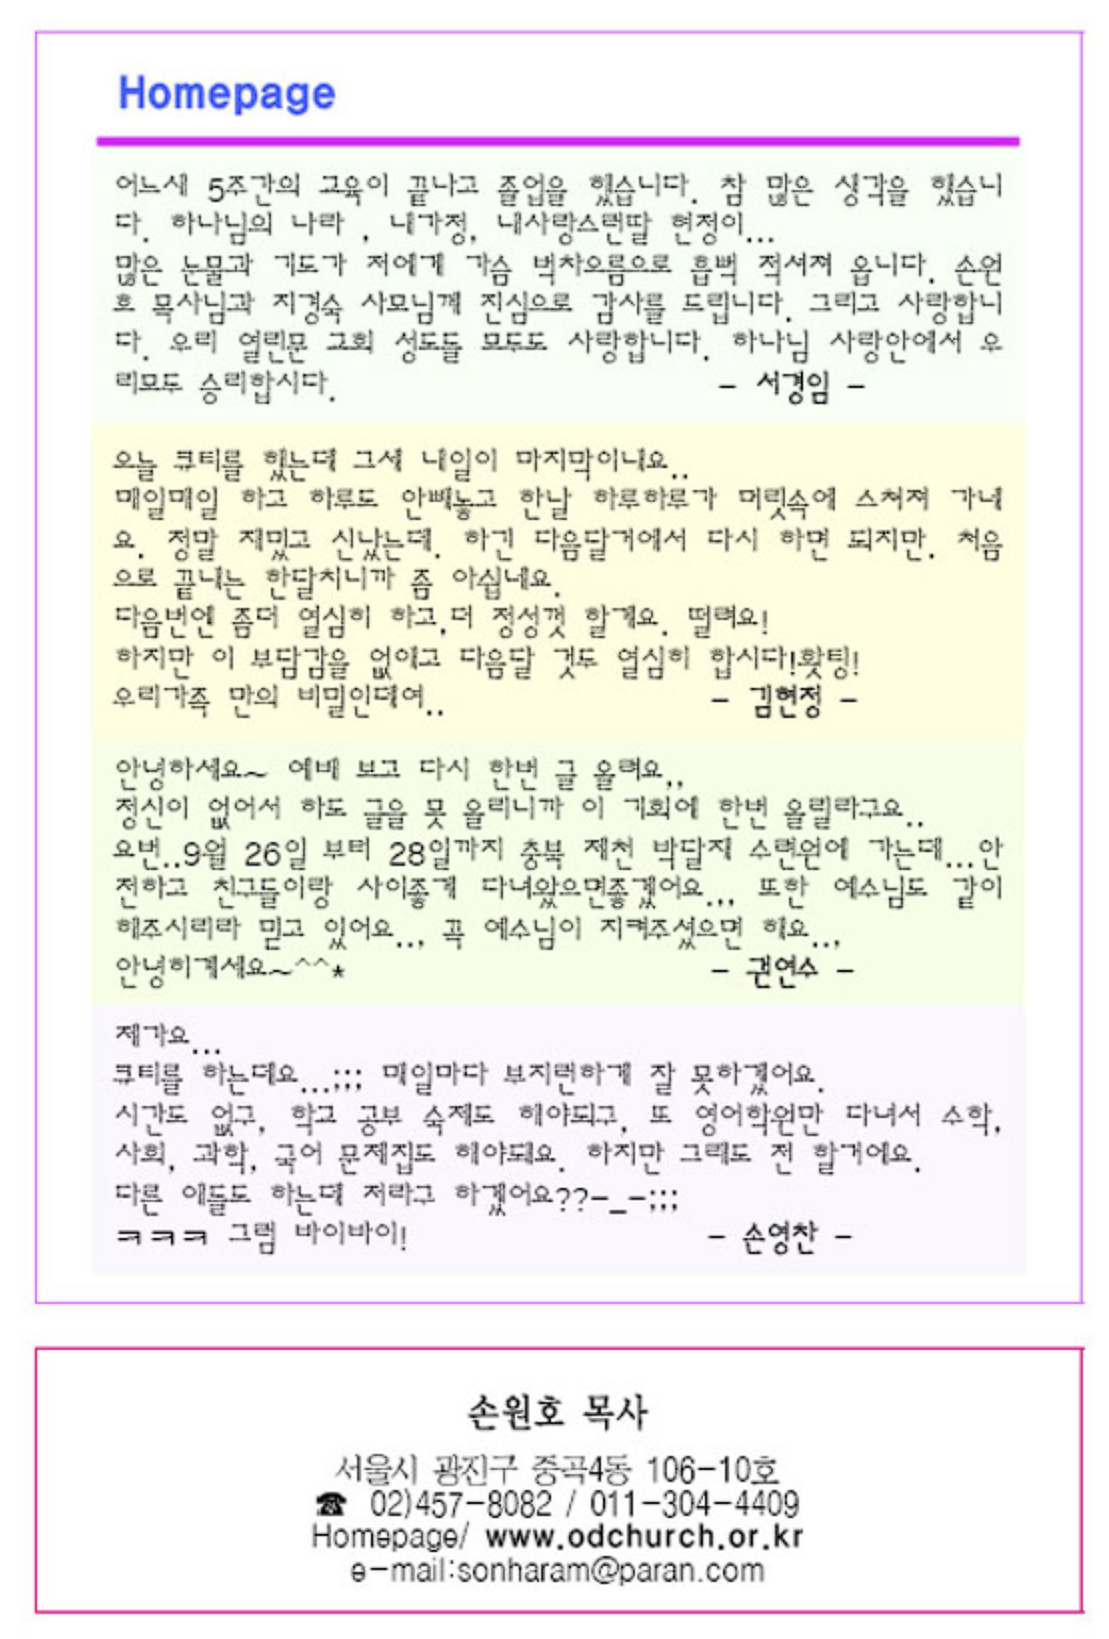 Homepage
어느새 5주간의 교육이 끝나고 졸업을 했습니다. 참 많은 생각을 했습니
다. 하나님의 나라 , 내가정, 내사랑스런딸 현정이...
많은 눈물과 기도가 저에게 가슴 벅차오름으로 흠뻑 적셔져 옵니다. 손원
호 목사님과 지경숙 사모님께 진심으로 감사를 드립니다. 그리고 사랑합니
다. 우리 열린문 교회 성도들 모두도 사랑합니다. 하나님 사랑안에서 우
리모두 승리합시다. - 서경임 -
오늘 큐티를 했는데 그세 내일이 마지막이네요..
매일매일 하고 하루도 안빼놓고 한날 하루하루가 머릿속에 스쳐져 가네
요. 정말 재밌고 신났는데. 하긴 다음달거에서 다시 하면 되지만. 처음
으로 끝내는 한달치니까 좀 아쉽네요.
다음번엔 좀더 열심히 하고,더 정성껏 할게요. 떨려요!
하지만 이 부담감을 없애고 다음달 것두 열심히 합시다!홧팅!
우리가족 만의 비밀인데여.. - 김현정 -
안녕하세요~ 예배 보고 다시 한번 글 올려요,,
정신이 없어서 하도 글을 못 올리니까 이 기회에 한번 올릴라구요..
요번..9월 26일 부터 28일까지 충북 제천 박달재 수련원에 가는데...안
전하고 친구들이랑 사이좋게 다녀왔으면좋겠어요.,, 또한 예수님도 같이
해주시리라 믿고 있어요.., 꼭 예수님이 지켜주셨으면 해요..,
안녕히계세요~^^* - 권연수 -
제가요...
큐티를 하는데요...;;; 매일마다 부지런하게 잘 못하겠어요.
시간도 없구, 학교 공부 숙제도 해야되구, 또 영어학원만 다녀서 수학,
사회, 과학, 국어 문제집도 해야돼요. 하지만 그래도 전 할거에요.
다른 애들도 하는데 저라고 하겠어요??-_-;;;
ㅋㅋㅋ 그럼 바이바이! - 손영찬 -
손원호 목사
서울시 광진구 중곡4동 106-10호
☎ 02)457-8082 / 011-304-4409
Homepage/ www.odchurch.or.kr
e-mail:sonharam@paran.com